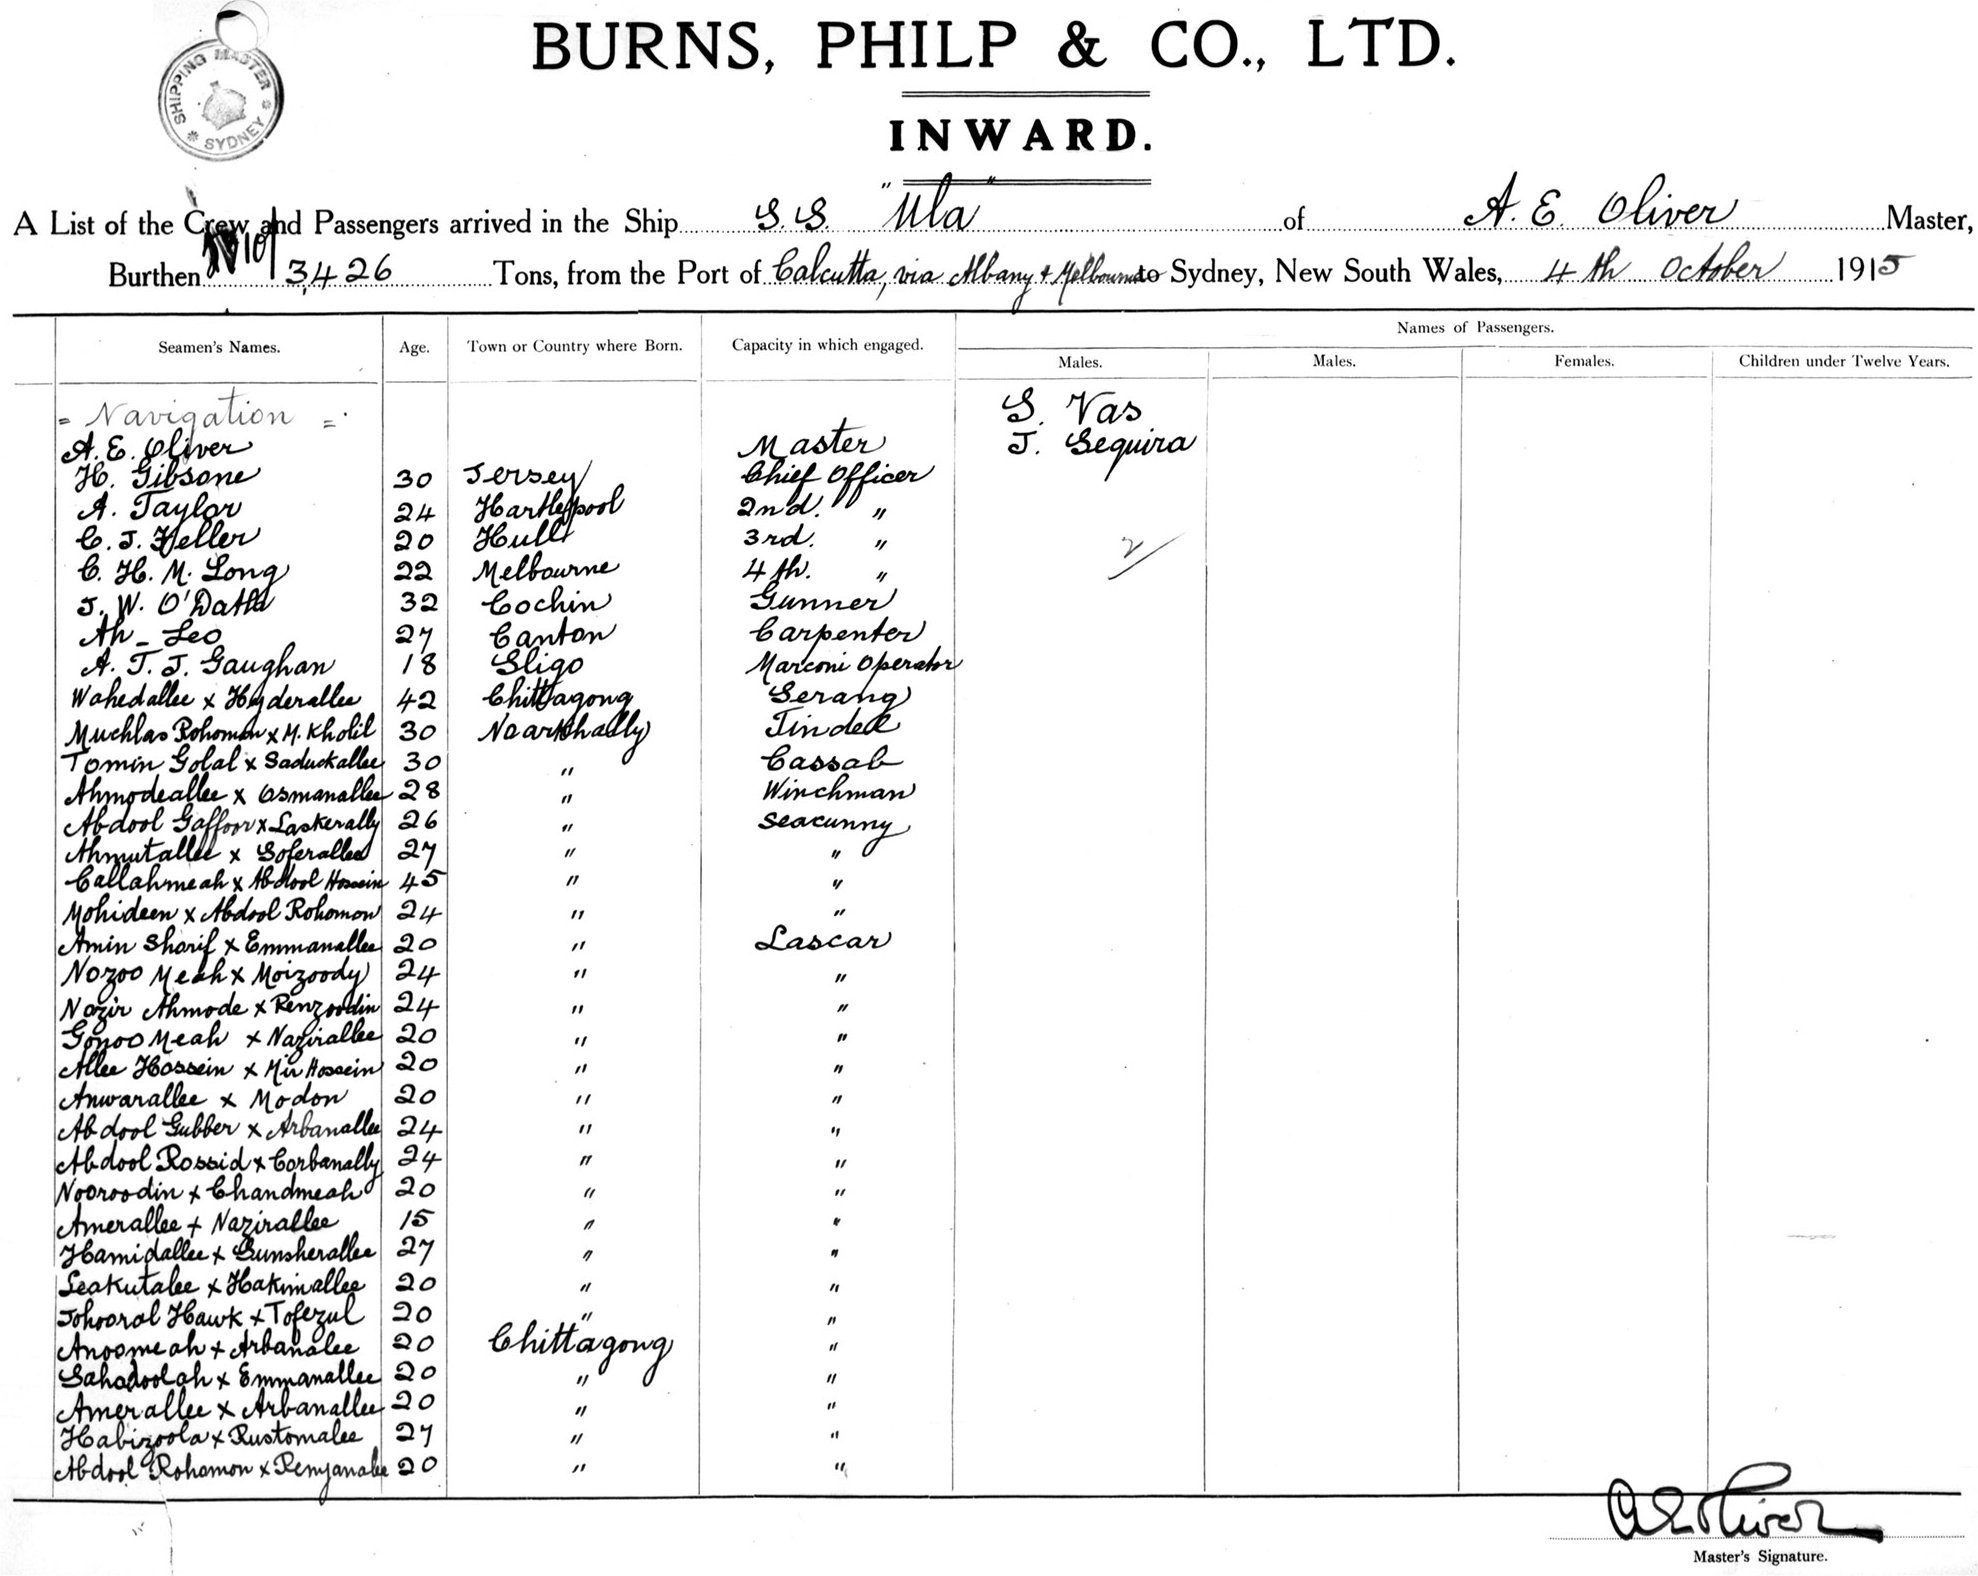 SHIPPING MASTER
* SYDNEY *
BURNS, PHILP & CO., LTD.
INWARD.
A List of the Crew and Passengers arrived in the Ship S.S. "Ula" of A. E. Oliver Master,
Burthen 3,426 Tons, from the Port of Calcutta, via Albany & Melbourne to Sydney, New South Wales, 4th October 1915
Names of Passengers.
Seamen's Names. Age. Town or Country where Born. Capacity in which engaged. Males. Males. Females. Children under Twelve Years.
= Navigation = S. Vas
A. E. Oliver Master J. Sequira
H. Gibsone 30 Jersey Chief Officer
A. Taylor 24 Hartlepool 2nd. "
C. J. Heller 20 Hull 3rd. " 2
C. H. M. Long 22 Melbourne 4th. "
J. W. O' 32 Cochin Gunner
Ah - Leo 27 Canton Carpenter
A. T. J. Gaughan 18 Sligo Marconi Operator
Wahedallee x Hyderallee 42 Chittagong Serang
Muchlas Rohoman x M. Kholil 30 Tindel
Tomin Golal x Saduckallee 30 " Cassab
Ahmodeallee x Osmanallee 28 " Winchman
Abdool Gaffoor x Laskerally 26 " Seacunny
Ahmutallee x Soferallee 27 " "
Callahmeah x Abdool Hossein 45 " "
Mohideen x Abdool Rohomon 24 " "
Amin Sharif x Emmanallee 20 " Lascar
Nozoo Meah x Moizoody 24 " "
Nazir Ahmode x Renzoodin 24 " "
Gonoo Meah x Nazirallee 20 " "
Allee Hossein x Mir Hossein 20 " "
Anwarallee x Modon 20 " "
Abdool Gubber x Arbanallee 24 " "
Abdool Rossid x Corbanally 24 " "
Nooroodin x Chandmeah 20 " "
Amerallee x Nazirallee 15 " "
Hamidallee x Gunsherallee 27 " "
Leakutalee x Hakimallee 20 " "
Johooral Hawk x Tofezul 20 " "
Anoomeah x Arbanalee 20 Chittagong "
Sahadoolah x Emmanallee 20 " "
Amerallee x Arbanallee 20 " "
Habizoola x Rustomalee 27 " "
Abdool Rohomon x Renyanalee 20 " "
A E Oliver
Master's Signature.